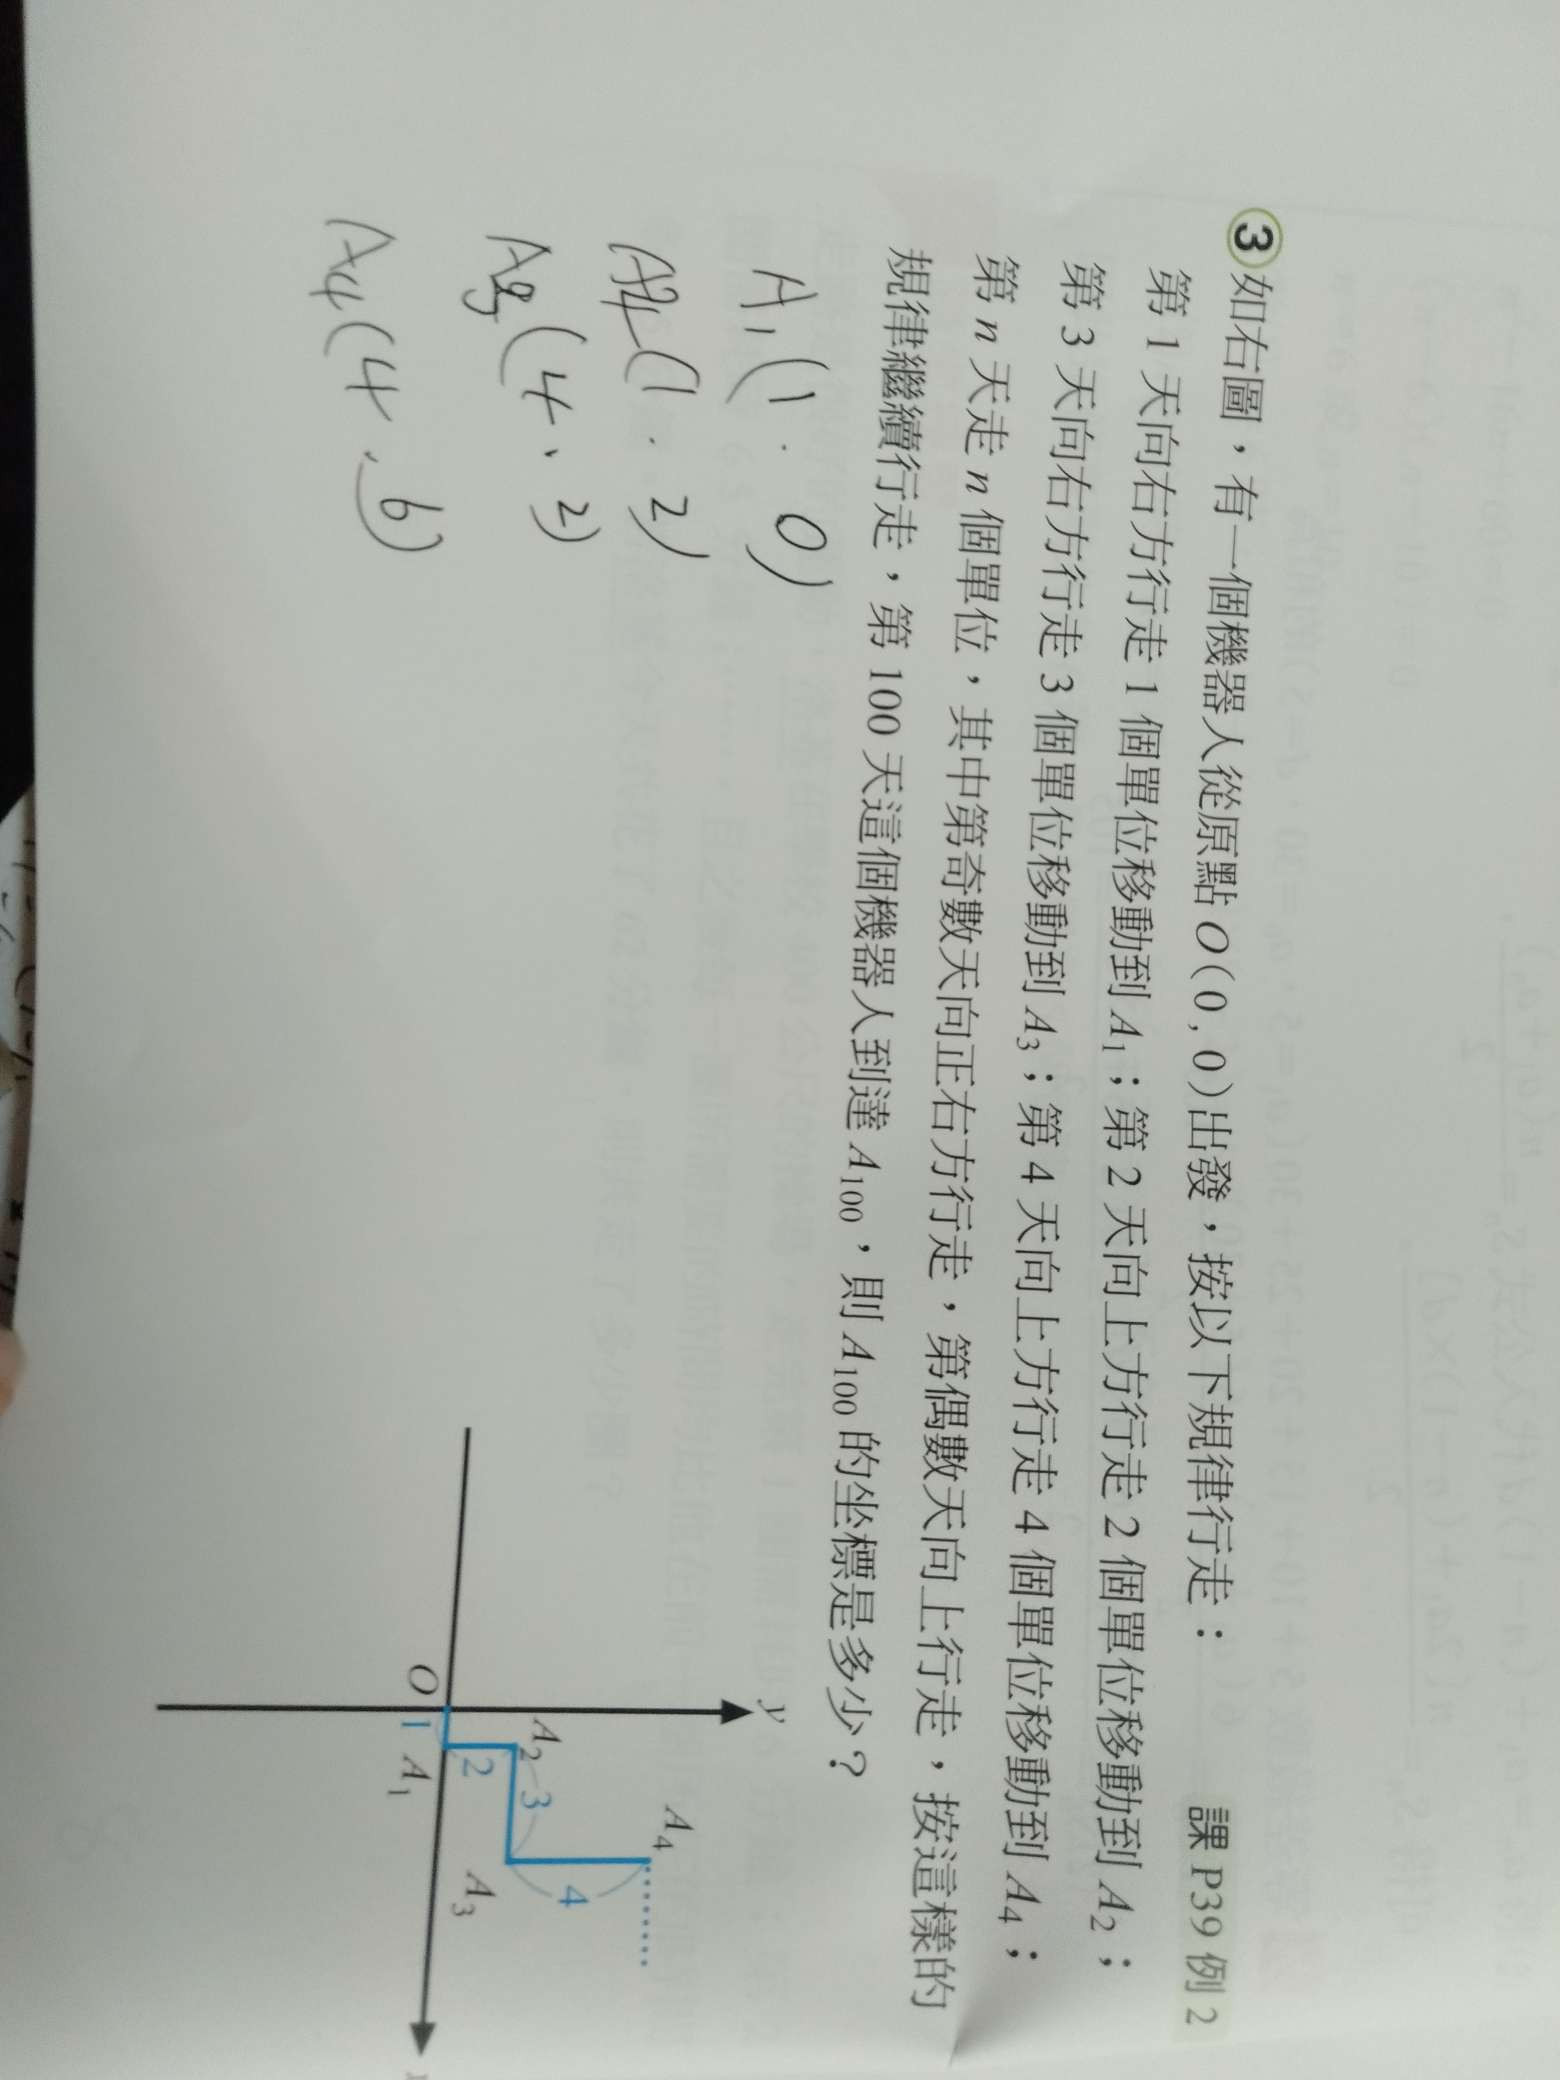 ③如右圖，有一個機器人從原點 O(0, 0)出發，按以下規律行走： 課 P39 例 2
第 1 天向右方行走 1 個單位移動到 A₁；第 2 天向上方行走 2 個單位移動到 A₂；
第 3 天向右方行走 3 個單位移動到 A₃；第 4 天向上方行走 4 個單位移動到 A₄；
第 n 天走 n 個單位，其中第奇數天向正右方行走，第偶數天向上行走，按這樣的
規律繼續行走，第 100 天這個機器人到達 A₁₀₀，則 A₁₀₀ 的坐標是多少？
A₁(1 . 0)
A₂(1 . 2)
A₃(4、2)
A₄(4、6)
y
A₄
A₂
3
4
2
A₃
O
1
A₁